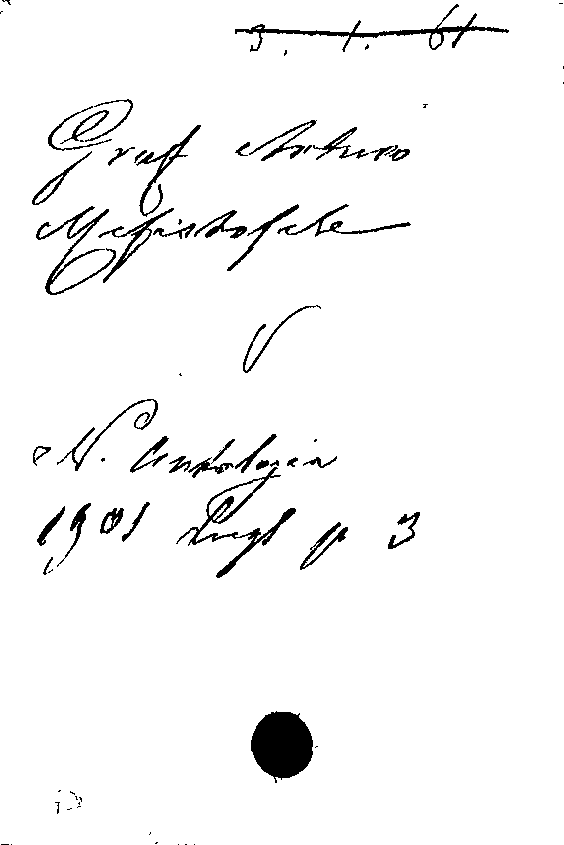 3. 1. 61
Graf Arturo
Mefistofele
V
N. Antologia
1901 Lugl p 3